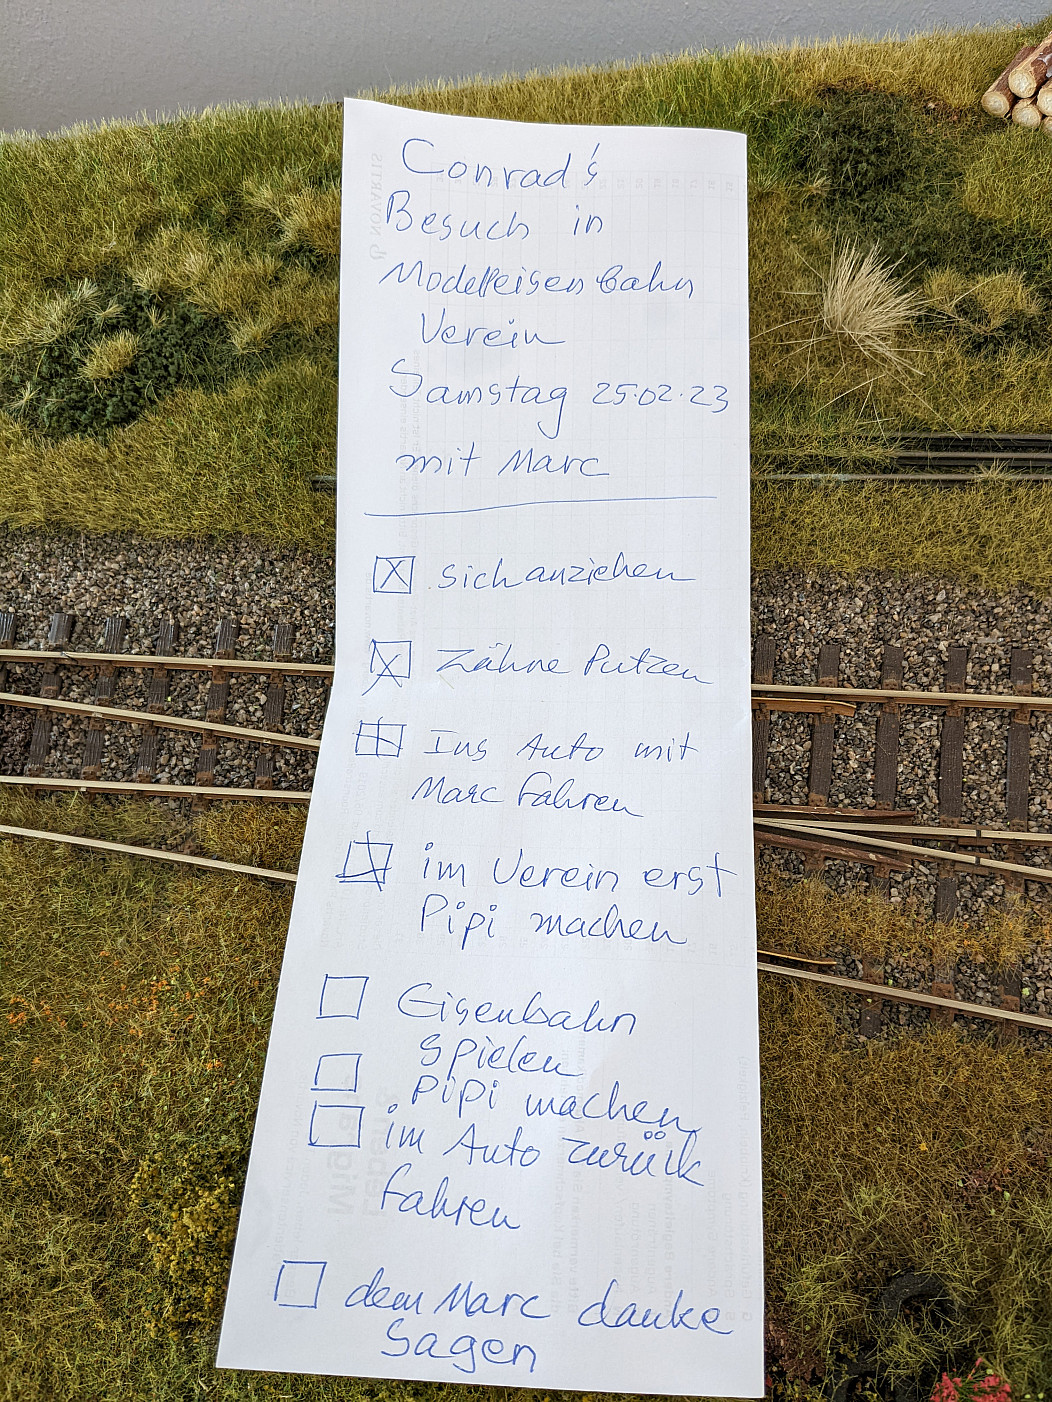 Conrad's
Besuch in
Modelleisenbahn
Verein
Samstag 25.02.23
mit Marc
sich anziehen
Zähne Putzen
Ins Auto mit
Marc fahren
im Verein erst
Pipi machen
Eisenbahn
Spielen
Pipi machen
im Auto zurück
fahren
dem Marc danke
Sagen
NOVARTIS